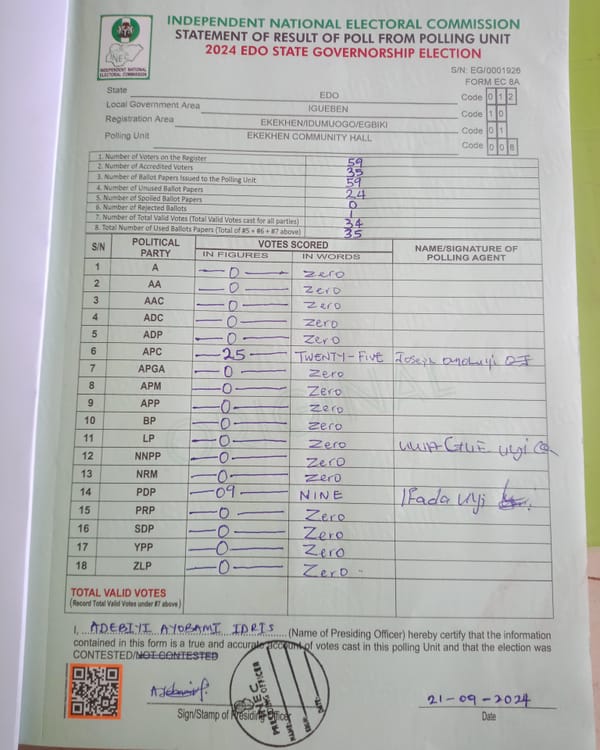 INDEPENDENT NATIONAL ELECTORAL COMMISSION
STATEMENT OF RESULT OF POLL FROM POLLING UNIT
2024 EDO STATE GOVERNORSHIP ELECTION
INEC
INDEPENDENT NATIONAL ELECTORAL COMMISSION
S/N: EG/0001926
FORM EC 8A
State EDO Code 0 1 2
Local Government Area IGUEBEN Code 1 0
Registration Area EKEKHEN/IDUMUOGO/EGBIKI Code 0 1
Polling Unit EKEKHEN COMMUNITY HALL Code 0 0 8
1. Number of Voters on the Register 59
2. Number of Accredited Voters 35
3. Number of Ballot Papers Issued to the Polling Unit 59
4. Number of Unused Ballot Papers 24
5. Number of Spoiled Ballot Papers 0
6. Number of Rejected Ballots 1
7. Number of Total Valid Votes (Total Valid Votes cast for all parties) 34
8. Total Number of Used Ballots Papers (Total of #5 + #6 + #7 above) 35
S/N POLITICAL PARTY VOTES SCORED NAME/SIGNATURE OF POLLING AGENT
IN FIGURES IN WORDS
1 A 0 Zero
2 AA 0 Zero
3 AAC 0 Zero
4 ADC 0 Zero
5 ADP 0 Zero
6 APC 25 TWENTY-FIVE Joseph
7 APGA 0 Zero
8 APM 0 Zero
9 APP 0 Zero
10 BP 0 Zero
11 LP 0 Zero
12 NNPP 0 Zero
13 NRM 0 Zero
14 PDP 09 NINE IFada Uyi
15 PRP 0 Zero
16 SDP 0 Zero
17 YPP 0 Zero
18 ZLP 0 Zero
TOTAL VALID VOTES
(Record Total Valid Votes under #7 above)
I, ADEBIYI AYOBAMI IDRIS (Name of Presiding Officer) hereby certify that the information
contained in this form is a true and accurate account of votes cast in this polling Unit and that the election was
CONTESTED/NOT CONTESTED
INEC
PRESIDING OFFICER
Sign/Stamp of Presiding Officer
21-09-2024
Date